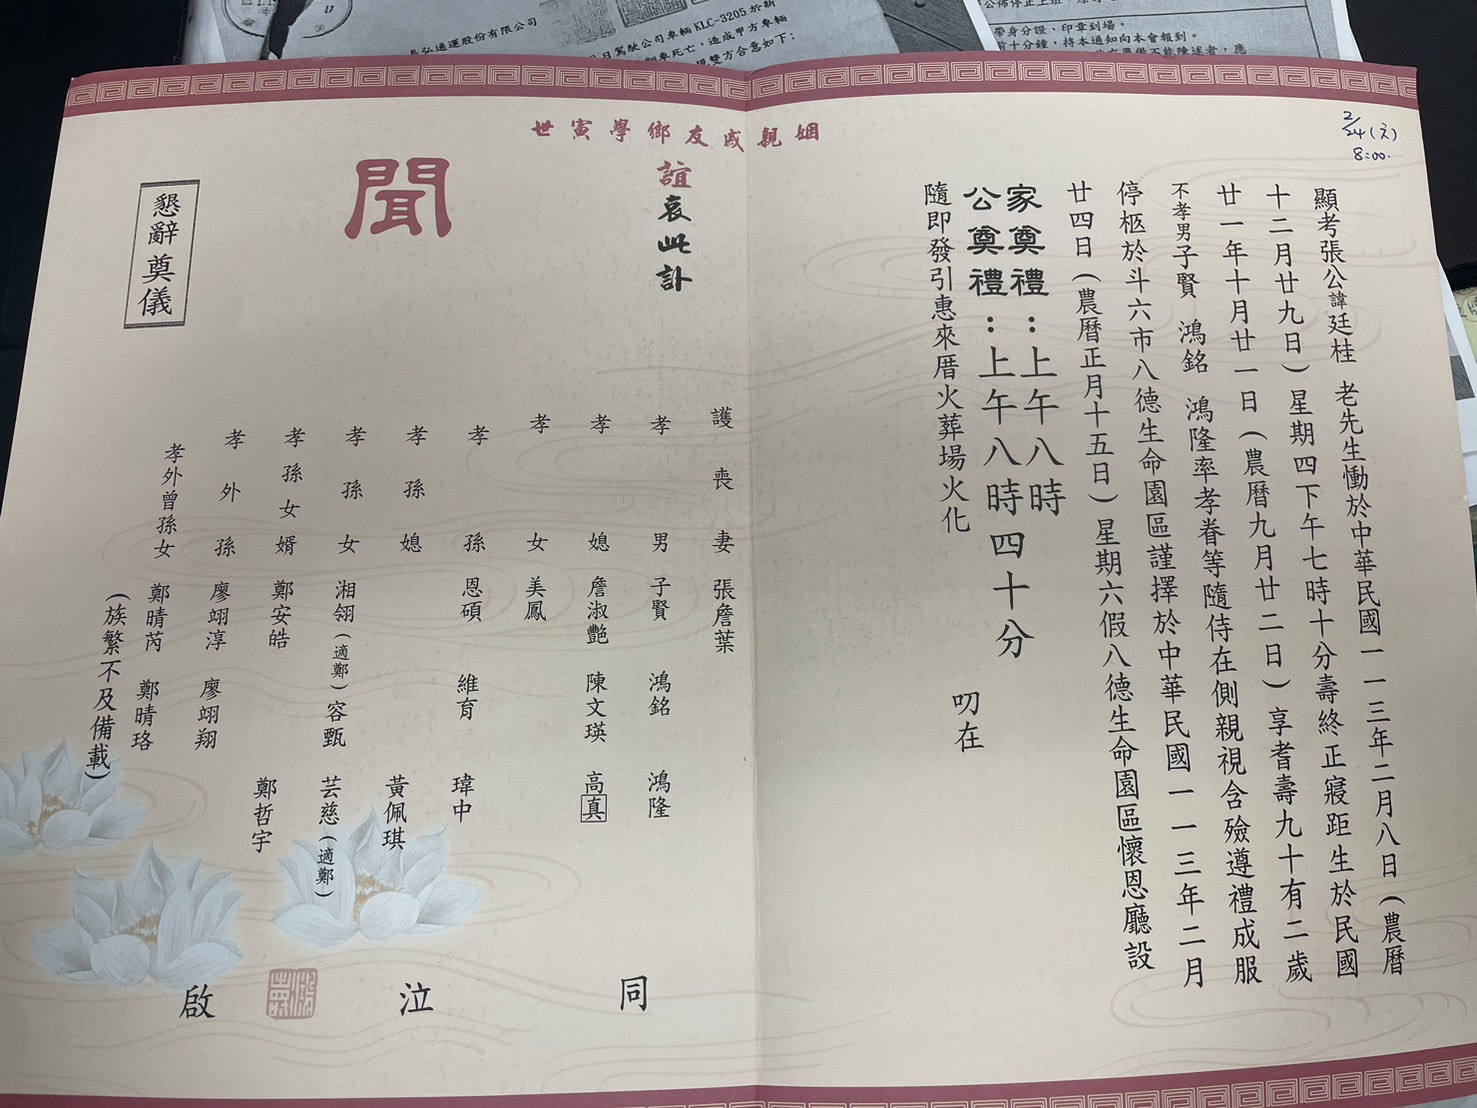 長弘通運股份有限公司
日駕駛公司車輛 KLC-3205 於新
車死亡，造成甲方車輛
雙方合意如下：
帶身分證、印章到場。
前十分鐘，持本通知向本會報到。
2/24(六)
8:00.
顯考張公諱廷桂 老先生慟於中華民國一一三年二月八日(農曆
十二月廿九日)星期四下午七時十分壽終正寢距生於民國
廿一年十月廿一日(農曆九月廿二日)享耆壽九十有二歲
不孝男子賢 鴻銘 鴻隆率孝眷等隨侍在側親視含殮遵禮成服
停柩於斗六市八德生命園區謹擇於中華民國一一三年二月
廿四日(農曆正月十五日)星期六假八德生命園區懷恩廳設
家奠禮：上午八時
公奠禮：上午八時四十分
隨即發引惠來厝火葬場火化 叨在
姻親戚友鄉學寅世
誼哀此訃
聞
護喪妻 張詹葉
孝男 子賢 鴻銘 鴻隆
孝媳 詹淑艷 陳文瑛 高真
孝女 美鳳
孝孫 恩碩 維育 瑋中
孝孫媳 黃佩琪
孝孫女 湘翎(適鄭) 容甄 芸慈(適鄭)
孝孫女婿 鄭安皓 鄭哲宇
孝外孫 廖翊淳 廖翊翔
孝外曾孫女 鄭晴芮 鄭晴珞
(族繁不及備載)
同 泣 啟
懇辭奠儀